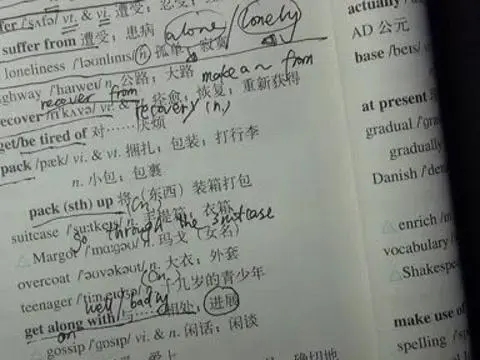 suffer /ˈsʌfə/ vt. & vi. 遭受；忍受；
suffer from 遭受；患病 alone / lonely
loneliness /ˈləʊnlinis/ n. 孤单；寂寞
highway /ˈhaiwei/ n. 公路；大路 make a ~ from
recover from recovery (n.)
recover /riˈkʌvə/ vi. & vt. 痊愈；恢复；重新获得
get/be tired of 对……厌烦
pack /pæk/ vi. & vt. 捆扎；包装；打行李
n. 小包；包裹
pack (sth) up 将（东西）装箱打包
(Cn.)
suitcase /ˈsu:tkeis/ n. 手提箱；衣箱
through the suitcase
△Margot /ˈmɑ:gəʊ/ 玛戈（女名）
overcoat /ˈəʊvəkəʊt/ n. 大衣；外套
(Cn.)
teenager 十几岁的青少年
well / badly
get along with 与……相处；进展
on
gossip /ˈgɔsip/ vi. & n. 闲话；闲谈
actually
AD 公元
base /beis/
at present
gradual
gradually
Danish
△enrich
vocabulary
△Shakespe
make use of
spelling